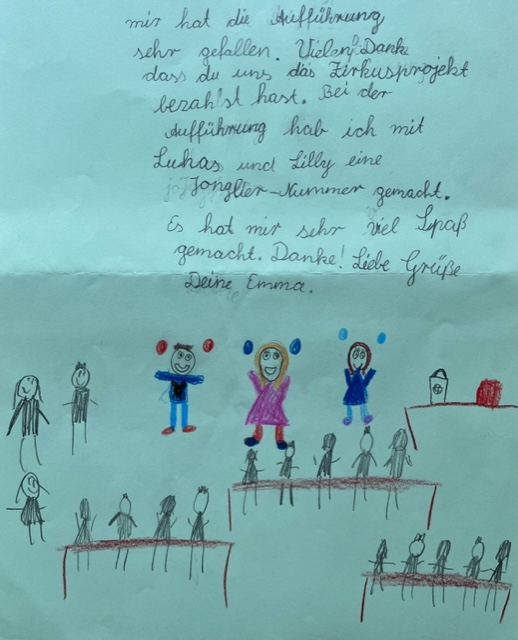 mir hat die Aufführung
sehr gefallen. Vielen Dank
dass du uns das Zirkusprojekt
bezahlst hast. Bei der
Aufführung hab ich mit
Lukas und Lilly eine
Jonglier-Nummer gemacht.
Es hat mir sehr viel Spaß
gemacht. Danke! Liebe Grüße
Deine Emma.